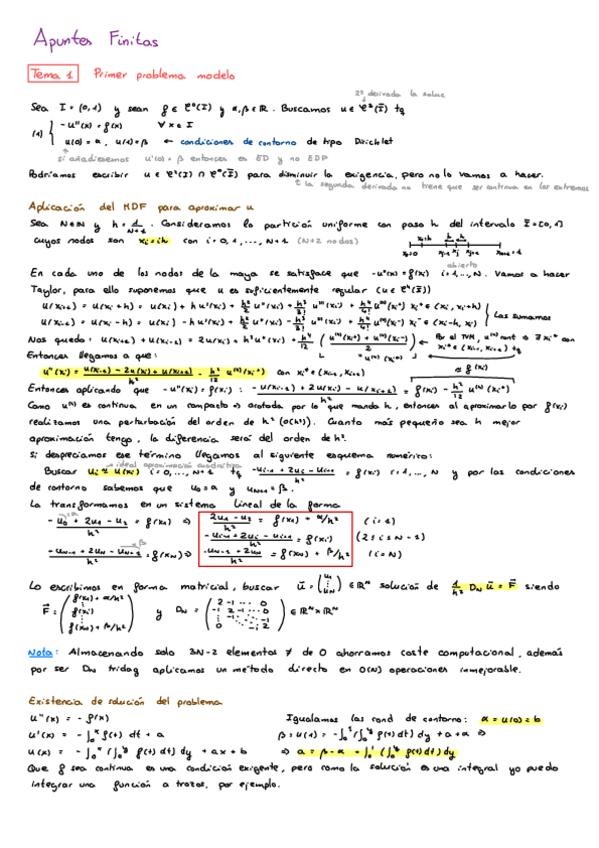 Apuntes Finitas
Tema 1 Primer problema modelo
2ª derivada la saluc
Sea I = (0,1) y sean f ∈ C⁰(I) y α,β ∈ ℝ. Buscamos u ∈ C²(Ī) tq
(1) { -u''(x) = f(x) ∀x ∈ I
u(0) = α, u(1) = β ← condiciones de contorno de tipo Dirichlet
si añadiésemos u'(0) = β entonces es ED y no EDP
Podríamos escribir u ∈ C²(I) ∩ C⁰(Ī) para disminuir la exigencia, pero no lo vamos a hacer.
la segunda derivada no tiene que ser continua en los extremos
Aplicación del MDF para aproximar u
Sea N∈ℕ y h = 1/(N+1). Consideramos la partición uniforme con paso h del intervalo Ī = [0,1]
cuyos nodos son xᵢ = ih con i = 0,1,..., N+1 (N+2 nodos)
abierto
En cada uno de los nodos de la maya se satisface que -u''(xᵢ) = f(xᵢ) i = 1,..., N. Vamos a hacer
Taylor, para ello suponemos que u es suficientemente regular (u ∈ C⁴(Ī))
u(xᵢ₊₁) = u(xᵢ + h) = u(xᵢ) + h u'(xᵢ) + h²/2 u''(xᵢ) + h³/3! u'''(xᵢ) + h⁴/4! u⁽⁴⁾(xᵢ⁺) xᵢ⁺ ∈ (xᵢ, xᵢ+h)
u(xᵢ₋₁) = u(xᵢ - h) = u(xᵢ) - h u'(xᵢ) + h²/2 u''(xᵢ) - h³/3! u'''(xᵢ) + h⁴/4! u⁽⁴⁾(xᵢ⁻) xᵢ⁻ ∈ (xᵢ-h, xᵢ)
Las sumamos
Nos queda: u(xᵢ₊₁) + u(xᵢ₋₁) = 2u(xᵢ) + h² u''(xᵢ) + h⁴/12 ( (u⁽⁴⁾(xᵢ⁺) + u⁽⁴⁾(xᵢ⁻))/2 ) ← Por el TVM, u⁽⁴⁾ cont ⇒ ∃ xᵢ* con
= u⁽⁴⁾(xᵢ*) xᵢ* ∈ (xᵢ₋₁, xᵢ₊₁) tq
Entonces llegamos a que:
u''(xᵢ) = (u(xᵢ₋₁) - 2u(xᵢ) + u(xᵢ₊₁))/h² - h²/12 u⁽⁴⁾(xᵢ*) con xᵢ* ∈ (xᵢ₋₁, xᵢ₊₁) ≈ f(xᵢ)
Entonces aplicando que -u''(xᵢ) = f(xᵢ): (-u(xᵢ₋₁) + 2u(xᵢ) - u(xᵢ₊₁))/h² = f(xᵢ) - h²/12 u⁽⁴⁾(xᵢ*)
Como u⁽⁴⁾ es continua en un compacto ⇒ acotada por lo que manda h, entonces al aproximarlo por f(xᵢ)
realizamos una perturbación del orden de h² (O(h²)). Cuanto más pequeño sea h mejor
aproximación tengo, la diferencia será del orden de h².
Si despreciamos ese término llegamos al siguiente esquema numérico:
ideal aproximación cuadrática
Buscar uᵢ ≈ u(xᵢ) i = 0,..., N+1 tq (-uᵢ₋₁ + 2uᵢ - uᵢ₊₁)/h² = f(xᵢ) i = 1,..., N y por las condiciones
de contorno sabemos que u₀ = α y u_N+1 = β.
Lo transformamos en un sistema lineal de la forma
(-u₀ + 2u₁ - u₂)/h² = f(x₁) ⇒ (2u₁ - u₂)/h² = f(x₁) + α/h² (i = 1)
(-uᵢ₋₁ + 2uᵢ - uᵢ₊₁)/h² = f(xᵢ) (2 ≤ i ≤ N-1)
(-u_N-1 + 2u_N - u_N+1)/h² = f(x_N) ⇒ (-u_N-1 + 2u_N)/h² = f(x_N) + β/h² (i = N)
Lo escribimos en forma matricial, buscar ū = (u₁ ⋮ u_N) ∈ ℝᴺ solución de 1/h² D_N ū = F siendo
F = (f(x₁) + α/h² ⋮ f(xᵢ) ⋮ f(x_N) + β/h²) y D_N = (2 -1 ... 0 -1 2 -1 ... 0 ⋮ 0 ... -1 2) ∈ ℝᴺˣℝᴺ
Nota: Almacenando solo 3N-2 elementos ≠ de 0 ahorramos coste computacional, además
por ser D_N tridag aplicamos un método directo en O(N) operaciones inmejorable.
Existencia de solución del problema
u''(x) = -f(x) Igualamos las cond de contorno: α = u(0) = b
u'(x) = -∫₀ˣ f(t) dt + a β = u(1) = -∫₀¹(∫₀ʸ f(t) dt) dy + a + α ⇒
u(x) = -∫₀ˣ (∫₀ʸ f(t) dt) dy + ax + b ⇒ a = β - α + ∫₀¹(∫₀ʸ f(t) dt) dy
Que f sea continua es una condición exigente, pero como la solución es una integral yo puedo
integrar una función a trozos, por ejemplo.